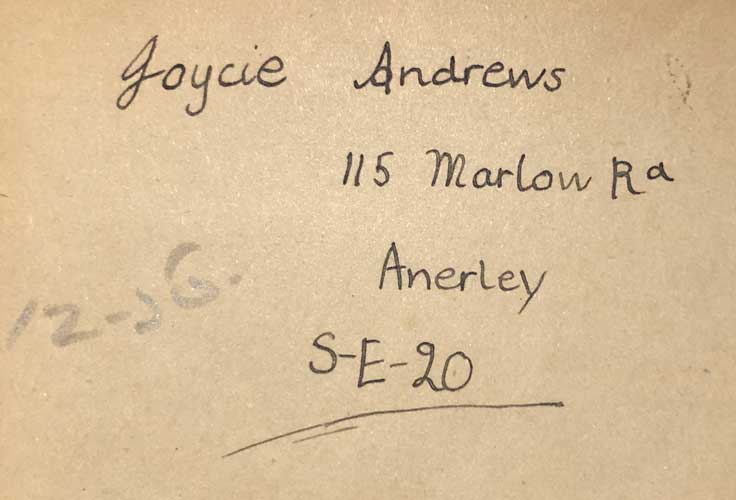 Joycie Andrews
115 Marlow Rd
Anerley
S-E-20